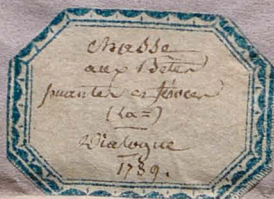 Chasse
aux Betes
puantes et féroces
(La=)
Dialogue
1789.